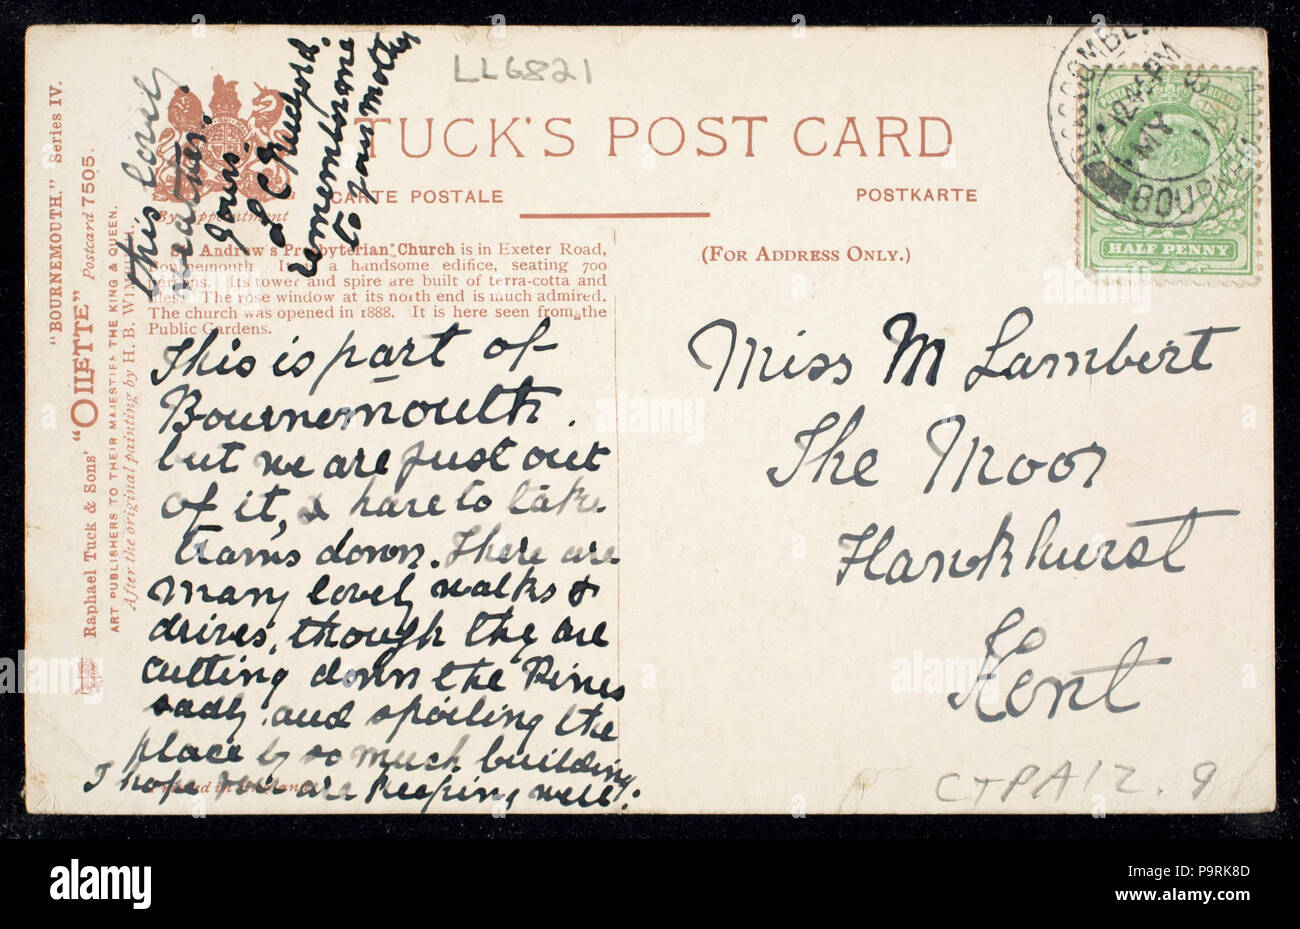 LL6821
TUCK'S POST CARD
CARTE POSTALE
POSTKARTE
By Appointment
(FOR ADDRESS ONLY.)
"BOURNEMOUTH." Series IV.
Raphael Tuck & Sons' "OILETTE" Postcard 7505.
ART PUBLISHERS TO THEIR MAJESTIES THE KING & QUEEN.
After the original painting by H. B. Wimbush
Andrew's Presbyterian Church is in Exeter Road,
Bournemouth. It is a handsome edifice, seating 700
persons. Its tower and spire are built of terra-cotta and
tiles. The rose window at its north end is much admired.
The church was opened in 1888. It is here seen from the
Public Gardens.
This is part of
Bournemouth.
but we are just out
of it, & have to take
trams down. There are
many lovely walks &
drives, though they are
cutting down the Pines
sadly. and spoiling the
place by so much building
I hope you are keeping well:
this lovely
weather.
yours.
remembrance
to your mother
Printed in England
Miss M Lambert
The Moor
Hawkhurst
Kent
BOSCOMBE
BOURNEMOUTH
HALF PENNY
CTPA12.9
alamy
alamy
Image ID: P9RK8D
www.alamy.com